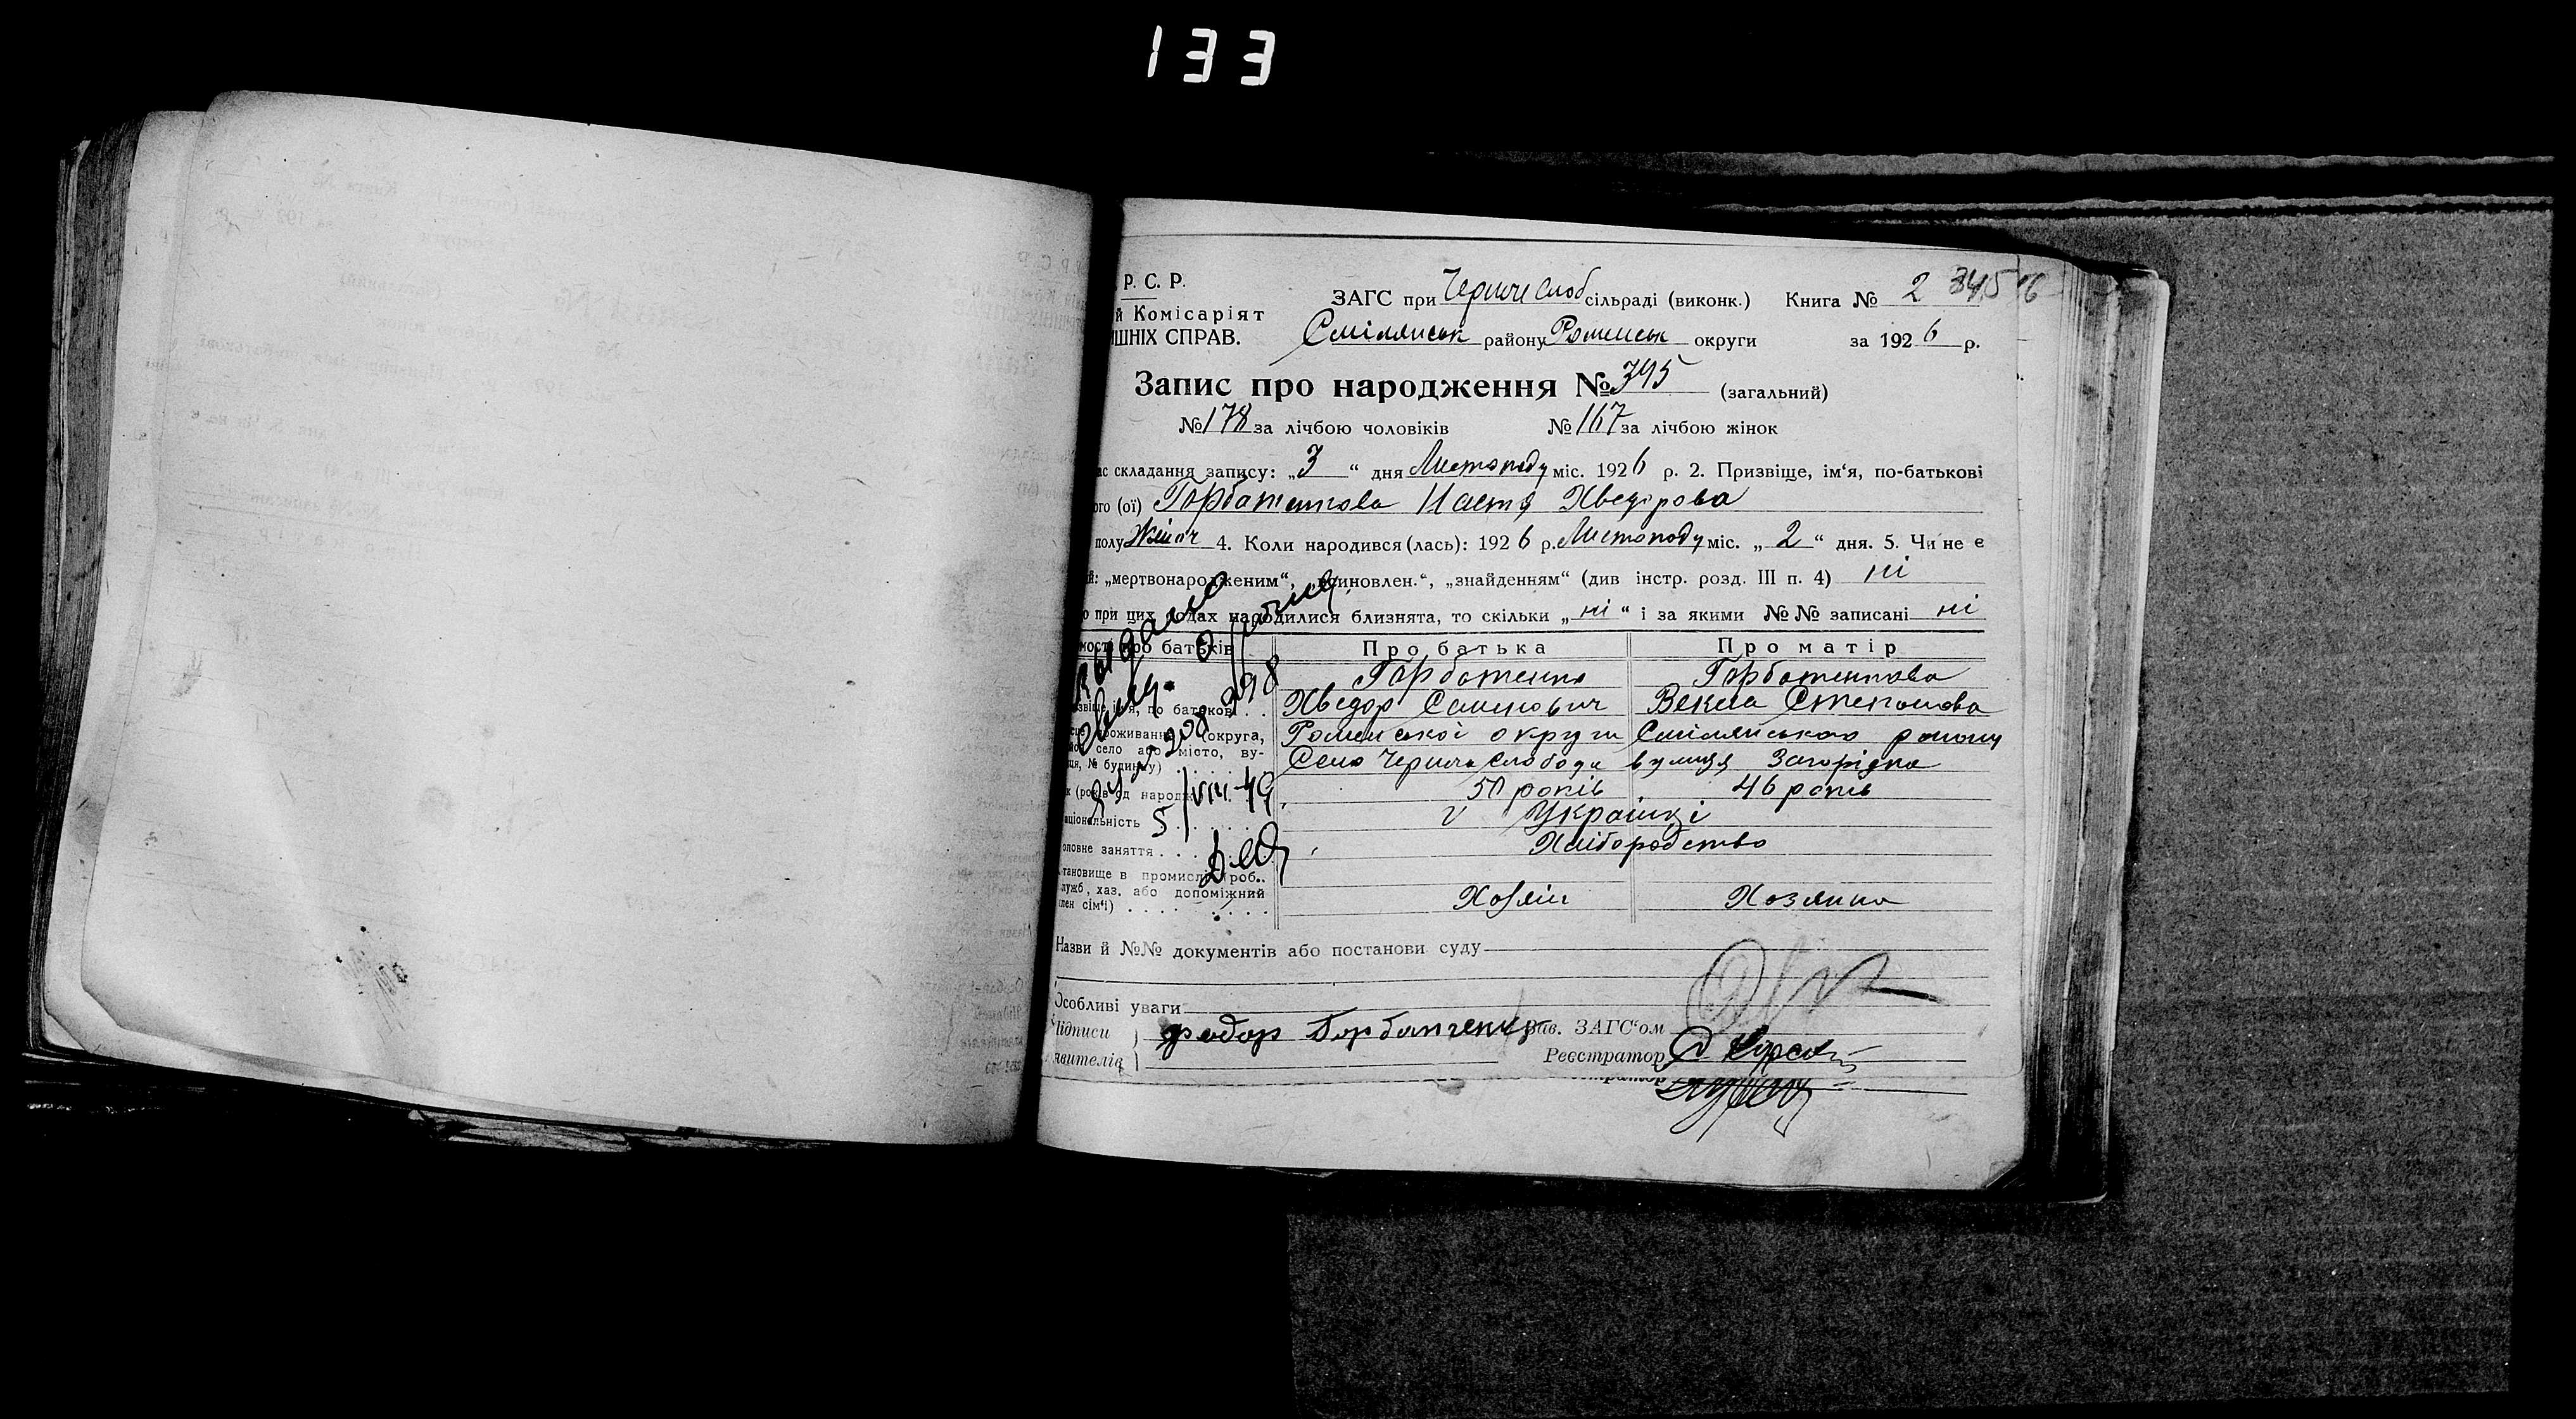 133
Р. С. Р.
й Комісаріят
ШНІХ СПРАВ.
ЗАГС при Черече Слоб сільраді (виконк.) Книга № 2 345
Смілянськ району Роменськ округи за 1926 р.
Запис про народження № 345 (загальний)
№ 178 за лічбою чоловіків № 167 за лічбою жінок
ас складання запису: „3“ дня Листопаду міс. 1926 р. 2. Призвіще, ім‘я, по-батькові
ого (ої) Горбатенкова Настя Хведірова
полу Жіноч 4. Коли народився(лась): 1926 р. Листопаду міс. „2“ дня. 5. Чи не є
й: „мертвонародженим“, „всиновлен.“, „знайденням“ (див інстр. розд. III п. 4) ні
о при цих родах народилися близнята, то скільки „ні“ і за якими №№ записані ні
мості про батьків Про батька Про матір
Горбатенко Горбатенкова
звіще, ім‘я, по батькові . . Хведор Семенович Векла Степанова
проживання (округа, Роменської округи Смілянського району
село або місто, ву-
ця, № будинку) Село Слобода вулиця Загорідна
к (років од народж. 50 років 46 років
аціональність Українці
оловне заняття . . . Хліборобство
тановище в промислі (роб..
служб, хаз. або допоміжний
лен сім‘ї) . . . . Хозяін Хозяйка
выдано
5/VIII-49
Назви й №№ документів або постанови суду
Особливі уваги
Підписи Федор Горбатенко Зав. ЗАГС‘ом
явителів Реєстратор
тратор